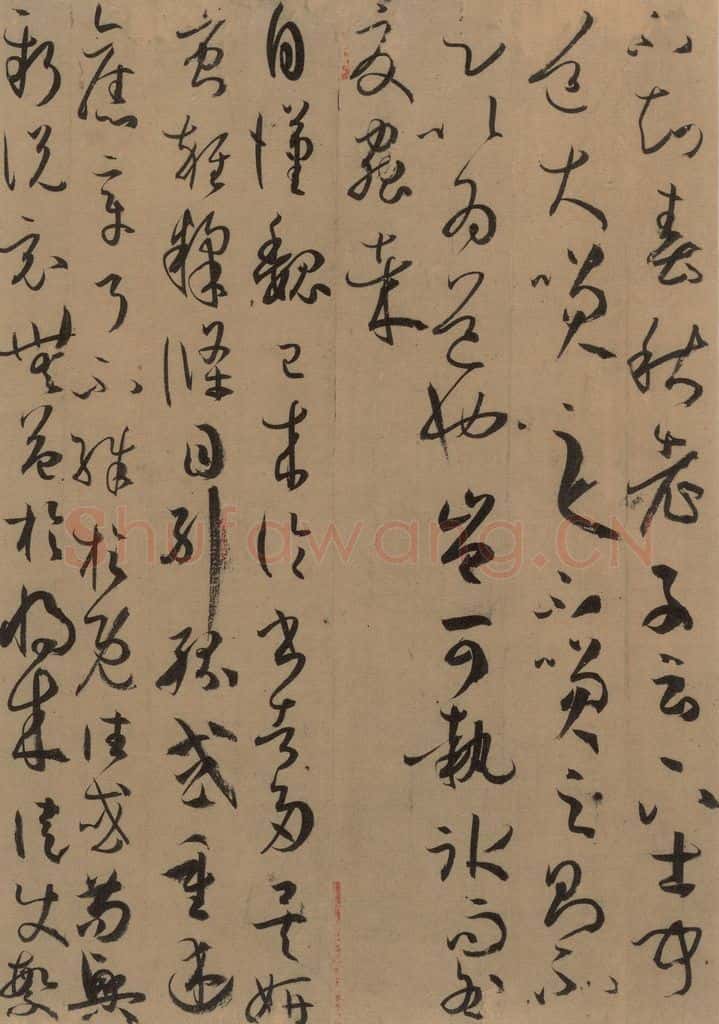 不知春秋老子云下士聞
道大笑之不笑之則不
足以為道也豈可執冰而咎
夏蟲哉
自漢魏已來論書者多矣妍
蚩雜糅條目糾紛或重述
舊章了不殊於既往或苟興
新說竟無益於將來徒使繁
Shufawang.CN